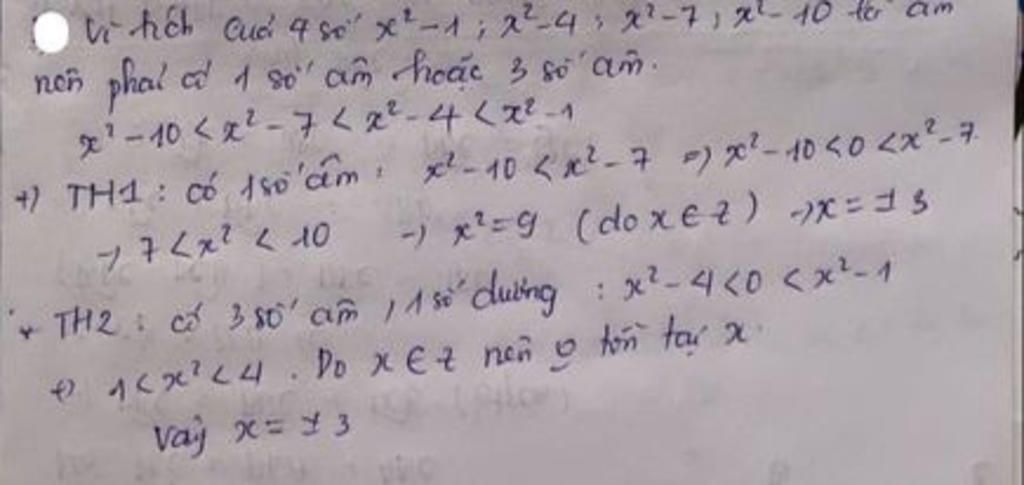 Vì tích của 4 số x² - 1 ; x² - 4 ; x² - 7 ; x² - 10 là âm
nên phải có 1 số âm hoặc 3 số âm.
x² - 10 < x² - 7 < x² - 4 < x² - 1
+) TH1 : có 1 số âm : x² - 10 < x² - 7 => x² - 10 < 0 < x² - 7.
→ 7 < x² < 10 → x² = 9 (do x ∈ z) → x = ± 3
* TH2 : có 3 số âm , 1 số dương : x² - 4 < 0 < x² - 1
1 < x² < 4 . Do x ∈ z nên tồn tại x.
Vậy x = ± 3